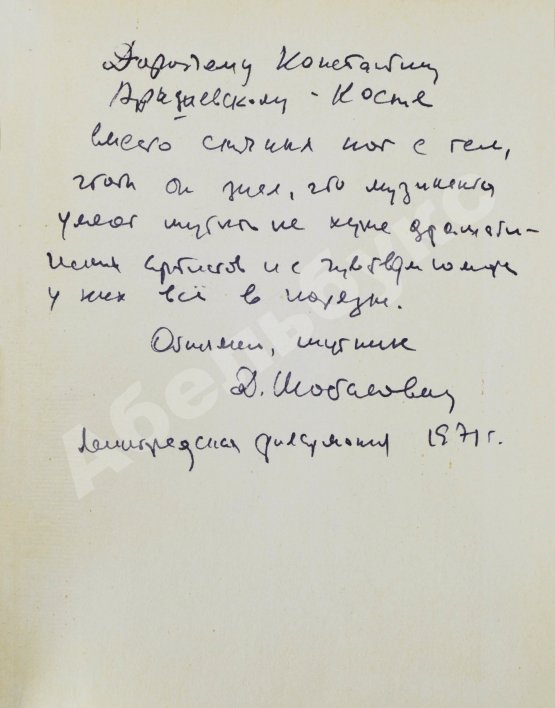 Дорогому Константину
Адашевскому - Косте
вместо скучных нот с тем,
чтобы он знал, что музыканты
умеют шутить не хуже драмати-
ческих артистов и с чувством юмора
у них всё в порядке.
Обнимаю, шутник
Д. Шостакович
Ленинградская филармония 1971 г.
Абельбукс